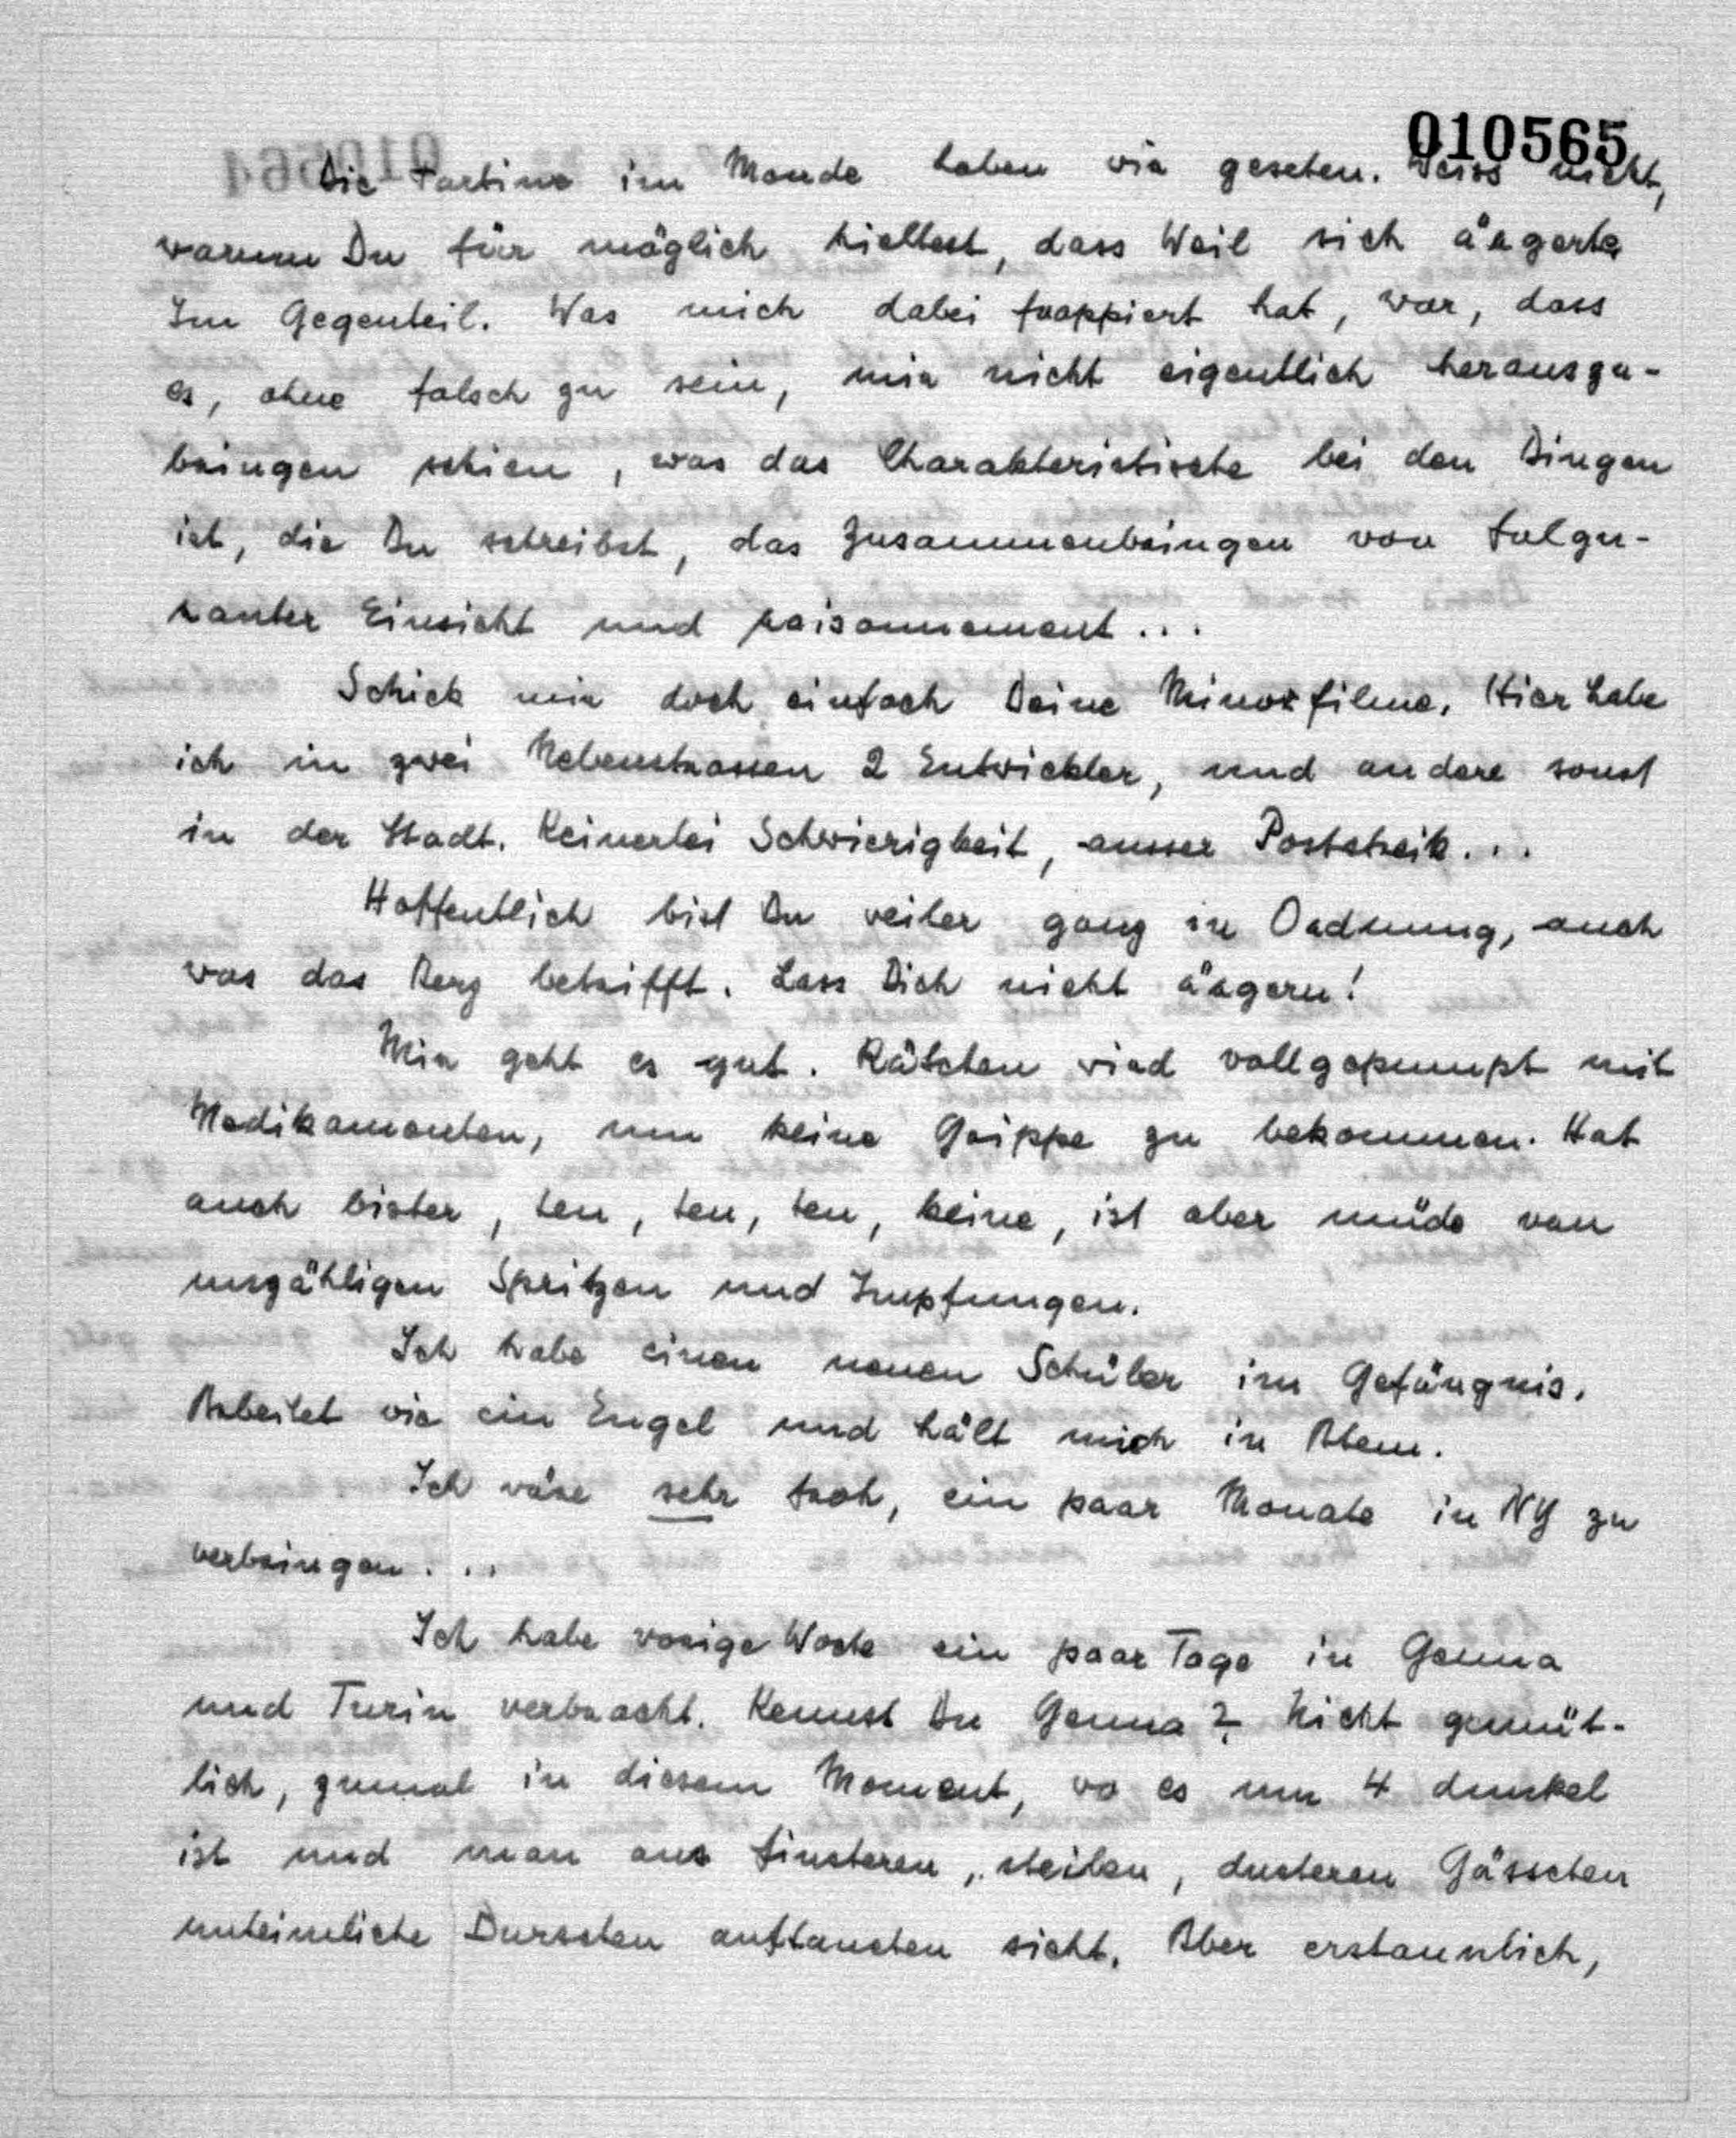 010565
Die Tartine im Monde haben wir gesehen. Weiss nicht,
warum Du für möglich hieltest, dass Weil sich ärgerte
Im Gegenteil. Was mich dabei frappiert hat, war, dass
es, ohne falsch zu sein, mir nicht eigentlich herauszu-
bringen schien, was das Charakteristische bei den Dingen
ist, die Du schreibst, das Zusammenbringen von fulgu-
ranter Einsicht und raisonnement...
Schick mir doch einfach Deine Minoxfilme. Hier habe
ich in zwei Nebenstrassen 2 Entwickler, und andere sonst
in der Stadt. Keinerlei Schwierigkeit, ausser Poststreik...
Hoffentlich bist Du weiter ganz in Ordnung, auch
was das Herz betrifft. Lass Dich nicht ärgern!
Mir geht es gut. Kätchen wird vollgepumpt mit
Medikamenten, um keine Grippe zu bekommen. Hat
auch bisher, ten, ten, ten, keine, ist aber müde von
unzähligen Spritzen und Impfungen.
Ich habe einen neuen Schüler im Gefängnis.
Arbeitet wie ein Engel und hält mich in Atem.
Ich wäre sehr froh, ein paar Monate in NY zu
verbringen...
Ich habe vorige Woche ein paar Tage in Genua
und Turin verbracht. Kennst Du Genua? Nicht gemüt-
lich, zumal in diesem Moment, wo es um 4 dunkel
ist und man aus finsteren, steilen, dusteren Gässchen
unheimliche Burschen auftauchen sieht. Aber erstaunlich,